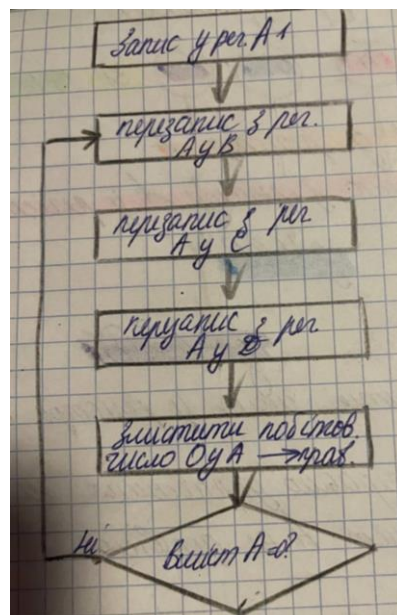 Запис у рег. А 1
перезапис з рег.
А у В
перезапис з рег
А у С
перезапис з рег
А у D
змістити побітов.
число 0 у А → прав.
Ні
Вміст А=0?